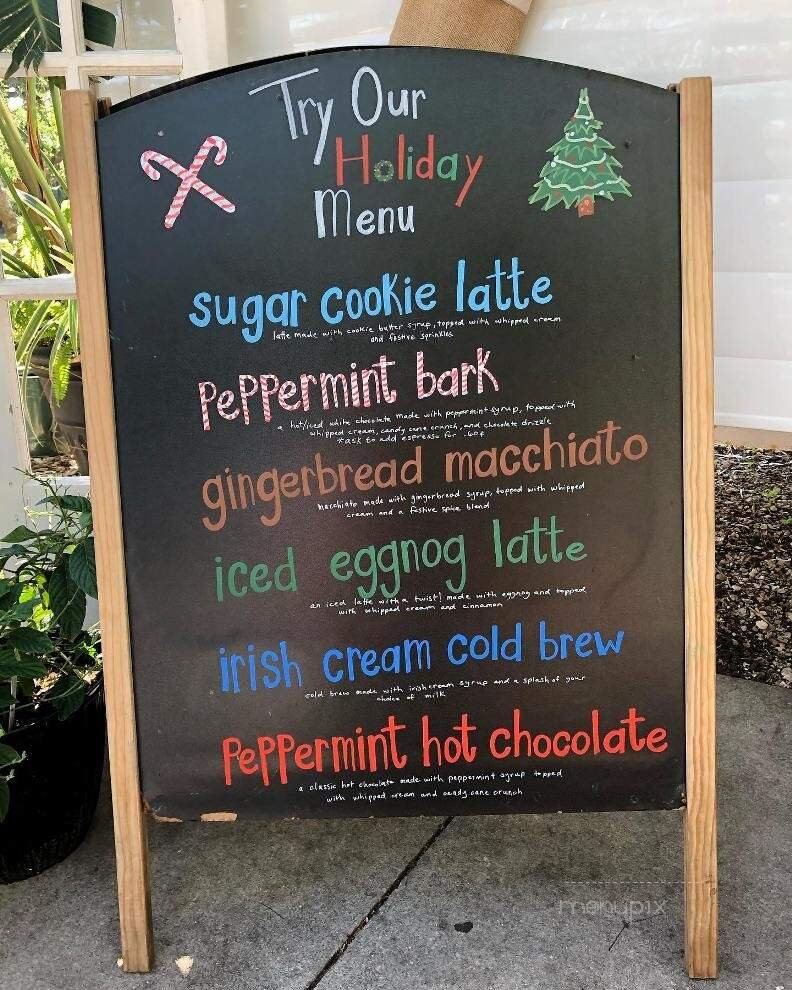 Try Our
Holiday
Menu
sugar cookie latte
latte made with cookie butter syrup, topped with whipped cream
and festive sprinkles
peppermint bark
a hot/iced white chocolate made with peppermint syrup, topped with
whipped cream, candy cane crunch, and chocolate drizzle
*ask to add espresso for .60¢
gingerbread macchiato
macchiato made with gingerbread syrup, topped with whipped
cream and a festive spice blend
iced eggnog latte
an iced latte with a twist! made with eggnog and topped
with whipped cream and cinnamon
irish cream cold brew
cold brew made with irish cream syrup and a splash of your
choice of milk
peppermint hot chocolate
a classic hot chocolate made with peppermint syrup topped
with whipped cream and candy cane crunch
menupix